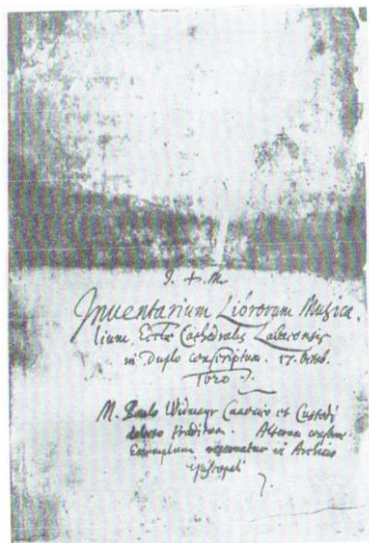 J. + M.
Inventarium Librorum Musica.
lium Eccłae Cathedralis Labacensis
in Duplo conscriptum. 17. Octob.
1620
M. Paulo Widmayr Canonico et Custodi
traditum. Alterum
Exemplum reservatur in Archivo
Episcopali